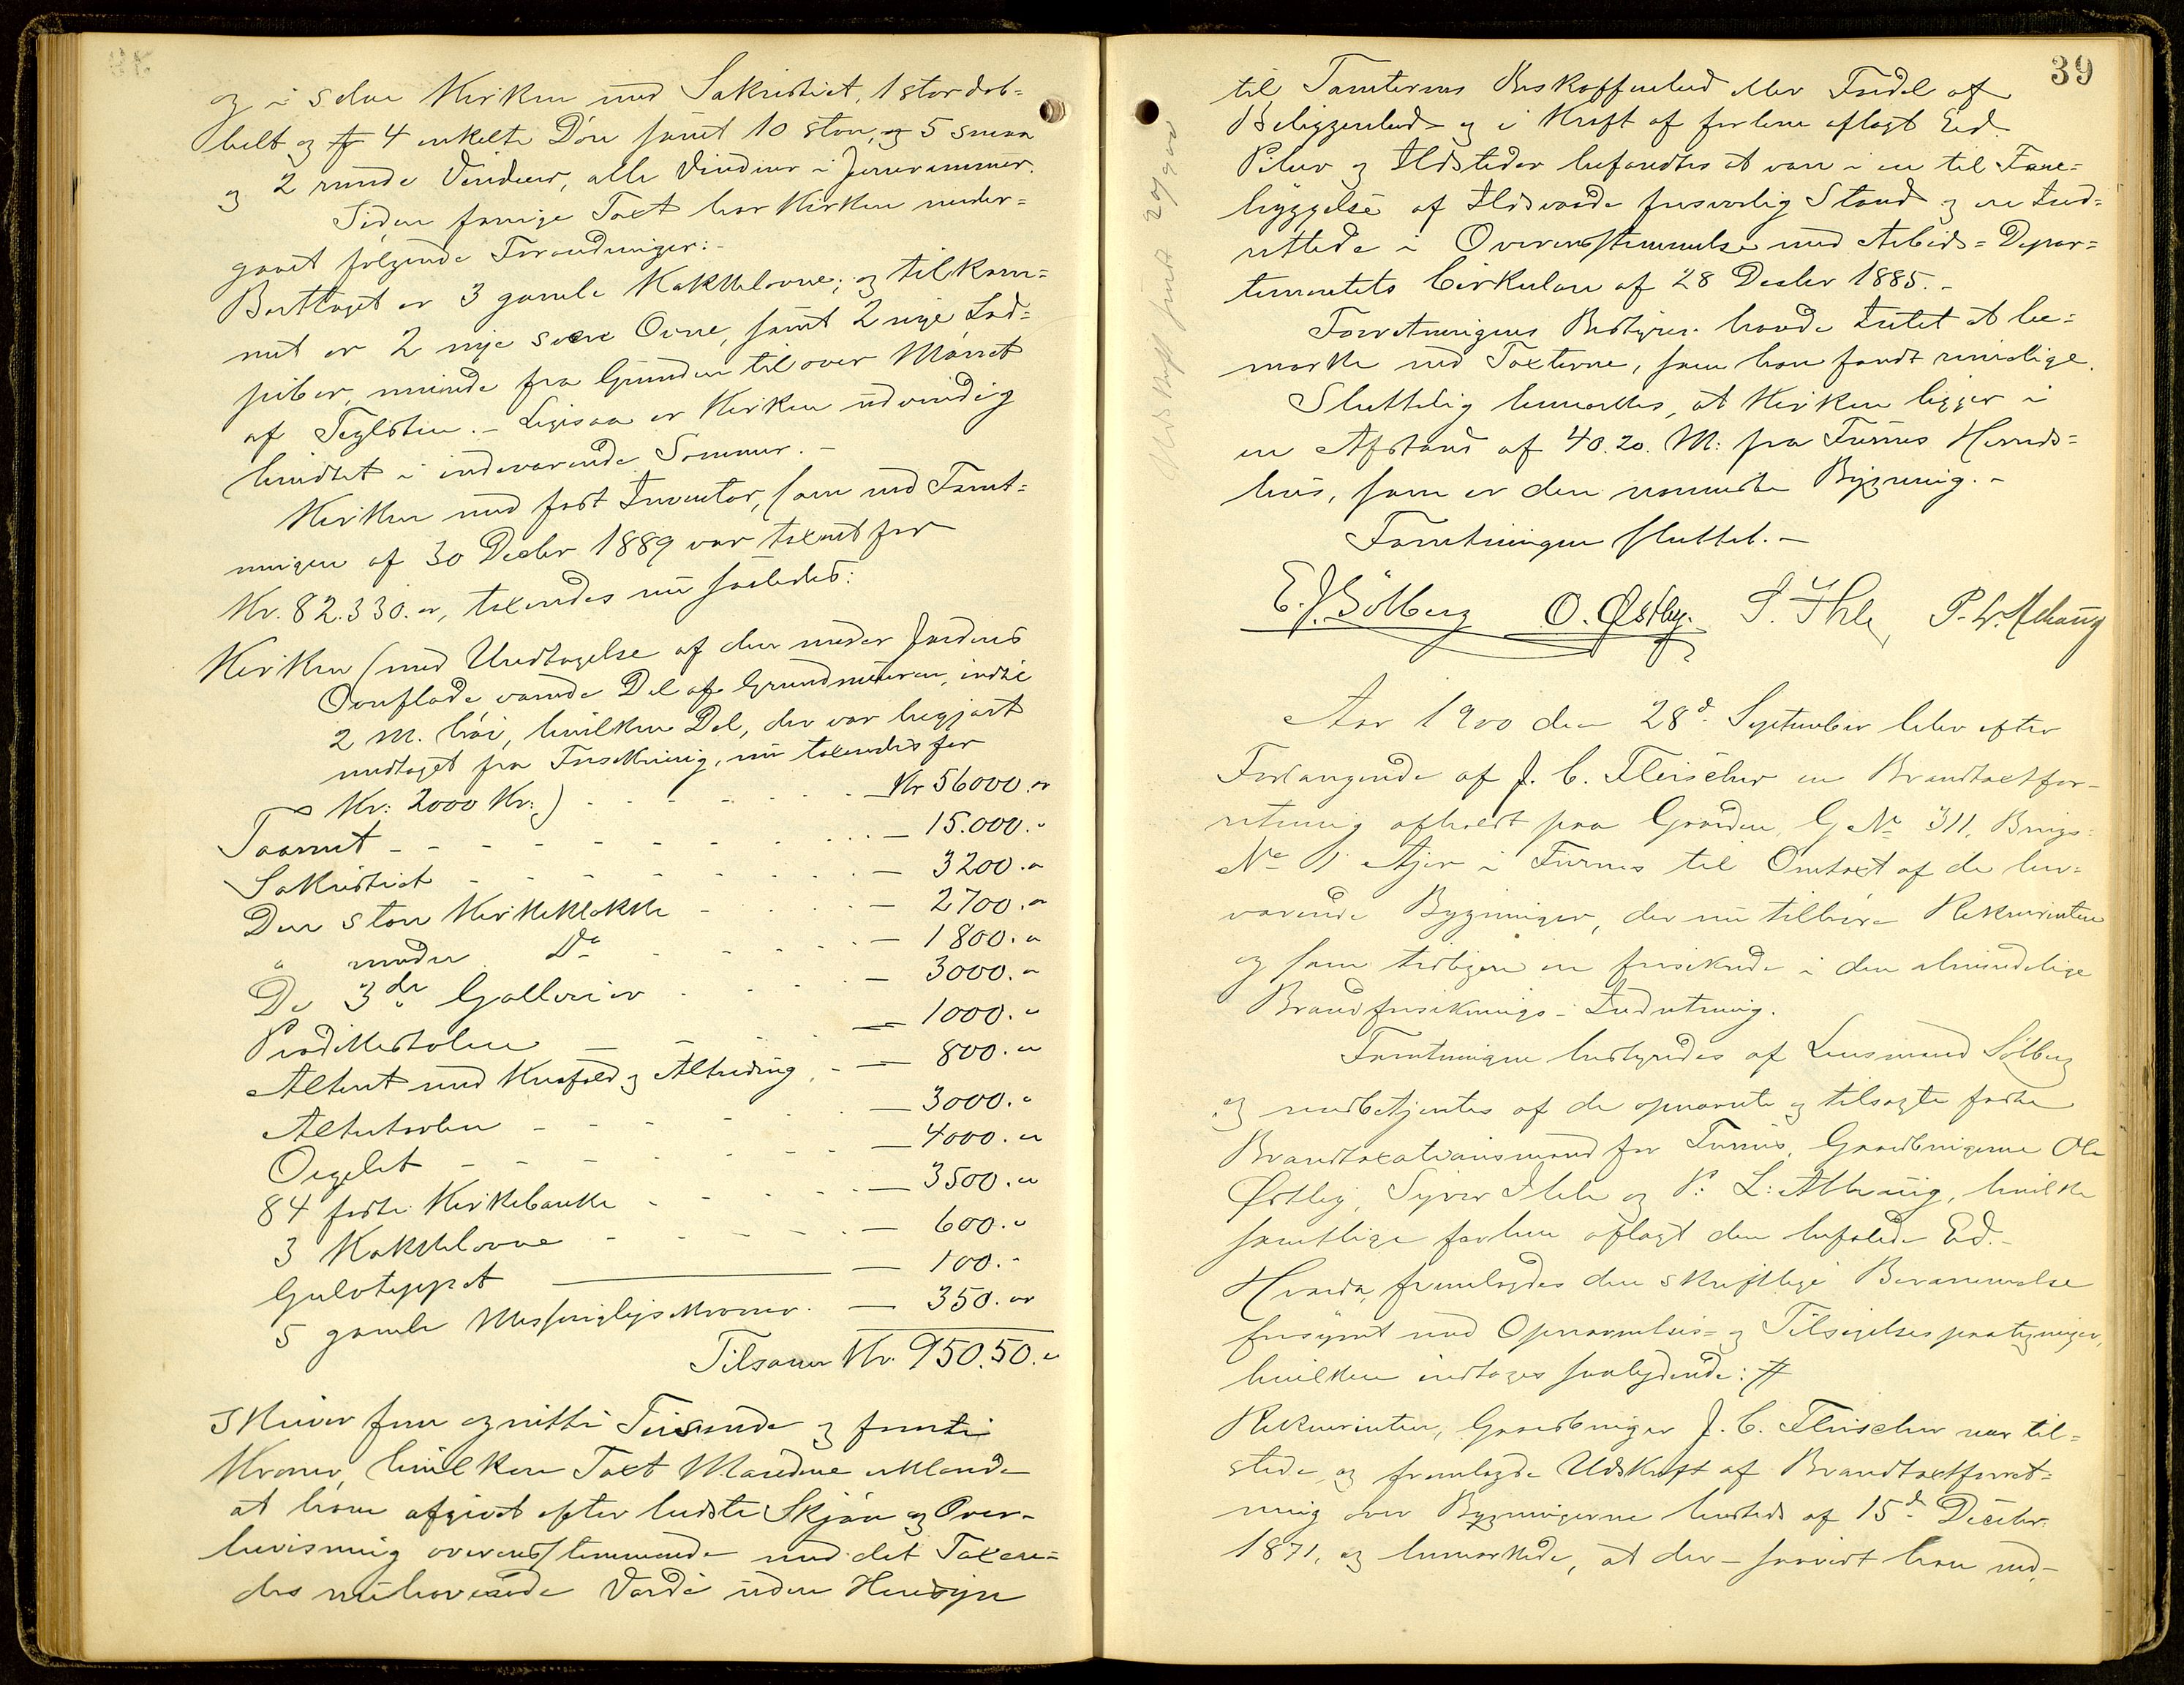 og i selve Kirken med Sakristiet, 1 stor dob=
belt og 4 enkelte Døre samt 10 store, og 5 smaa
og 2 runde Vinduer, alle Vinduer i Jernrammer.
Siden forrige Taxt har Kirken under=
gaaet følgende Forandringer:-
Borttaget er 3 gamle Kakkelovne; og tilkom=
met er 2 nye svære Ovne, samt 2 nye Lad=
piber, murede fra Grunden til over Mønet
af Teglsten.- Ligesaa er Kirken udvendig
hvidtet i indeværende Sommer.-
Kirken med fast Inventar, som ved Forret=
ningen af 30 Decbr 1889 var taxeret for
Kr. 82.330. „, taxeredes nu saaledes:
Kirken (med Undtagelse af den under Jordens
Overflade værende Del af Grundmuren, indtil
2 M. høi, hvilken Del, der var begjært
undtaget fra Forsikring, nu taxeredes for
Kr: 2000 Kr:) - - - - Kr 56000. „
Taarnet - - - - - - - - — 15.000. „
Sakristiet - - - - - - — 3200. „
Den store Kirkeklokke - - - — 2700. „
„ mindre Do - - - - — 1800. „
De 3de Gallerier - - - - — 3000. „
Prædikestolen — - - - — 1000. „
Alteret med Knæfald og Alterring. - — 800. „
Altertavlen - - - - - — 3000. „
Orgelet - - - - - - - — 4000. „
84 faste Kirkebænke - - - - — 3500. „
3 Kakkelovne - - - - - — 600. „
Gulvteppet ——— — 100. -
5 gamle Messinglysekroner. — 350. „
Tilsammen Kr. 950.50. „
Skriver fem og nitti Tusende og femti
Kroner, hvilken Taxt Mændene erklærede
at have afgivet efter bedste Skjøn og Over-
bevisning overensstemmende med det Taxere=
des nuhavende Værdi uden Hensyn
39
til Tomternes Beskaffenhed eller Fordel af
Beliggenhed og i Kraft af forhen aflagt Ed.
Piber og Ildsteder befandtes at være i en til Fore=
byggelse af Ildsvaade forsvarlig Stand og ere Ind=
rettede i Overensstemmelse med Arbeids=Depar=
tementets Cirkulære af 28 Decbr 1885.-
Forretningens Bestyrer havde Intet at be=
mærke ved Taxterne, som han fandt rimelige.
Sluttelig bemærkes, at Kirken ligger i
en Afstand af 40.20. M: fra Furnes Herreds=
hus, som er den nærmeste Bygning.-
Forretningen sluttet.-
E. J. Sølberg O. Østby. S. Ihle P. L. Alhaug
Aar 1900 den 28d. September blev efter
Forlangende af J. C. Fleischer en Brandtaxtfor-
retning afholdt paa Gaarden, G No 311, Brugs-
No 1 Ajer i Furnes til Omtaxt af de her=
værende Bygninger, der nu tilhøre Rekvirenten
og som tidligere ere forsikrede i den almindelige
Brandforsikrings-Indretning.
Forretningen bestyredes af Lensmand Sølberg
og medbetjentes af de opnævnte og tilsagte faste
Brandtaxationsmænd for Furnes, Gaardbrugerne Ole
Østby, Syver Ihle og P. L. Alhaug, hvilke
samtlige forhen aflagt den befalede Ed.-
Hvorda fremlagdes den skriftlige Berammelse
forsynet med Opnævnelses= og Tilsigelsespaategninger,
hvilken indtages saalydende: #
Rekvirenten, Gaardbruger J. C. Fleischer var til=
stede, og fremlagde Udskrift af Brandtaxtforret=
ning over Bygningerne hersteds af 15d. Decbr.
1871, og bemærkede, at der - saavidt han ved-